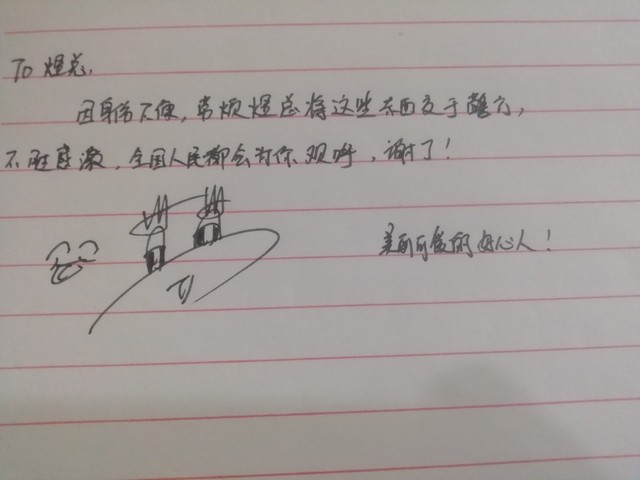 To 煜总,
因身份不便,劳烦煜总将这些东西交于
不胜感激,全国人民都会为你欢呼,谢了!
美丽可爱的好心人!